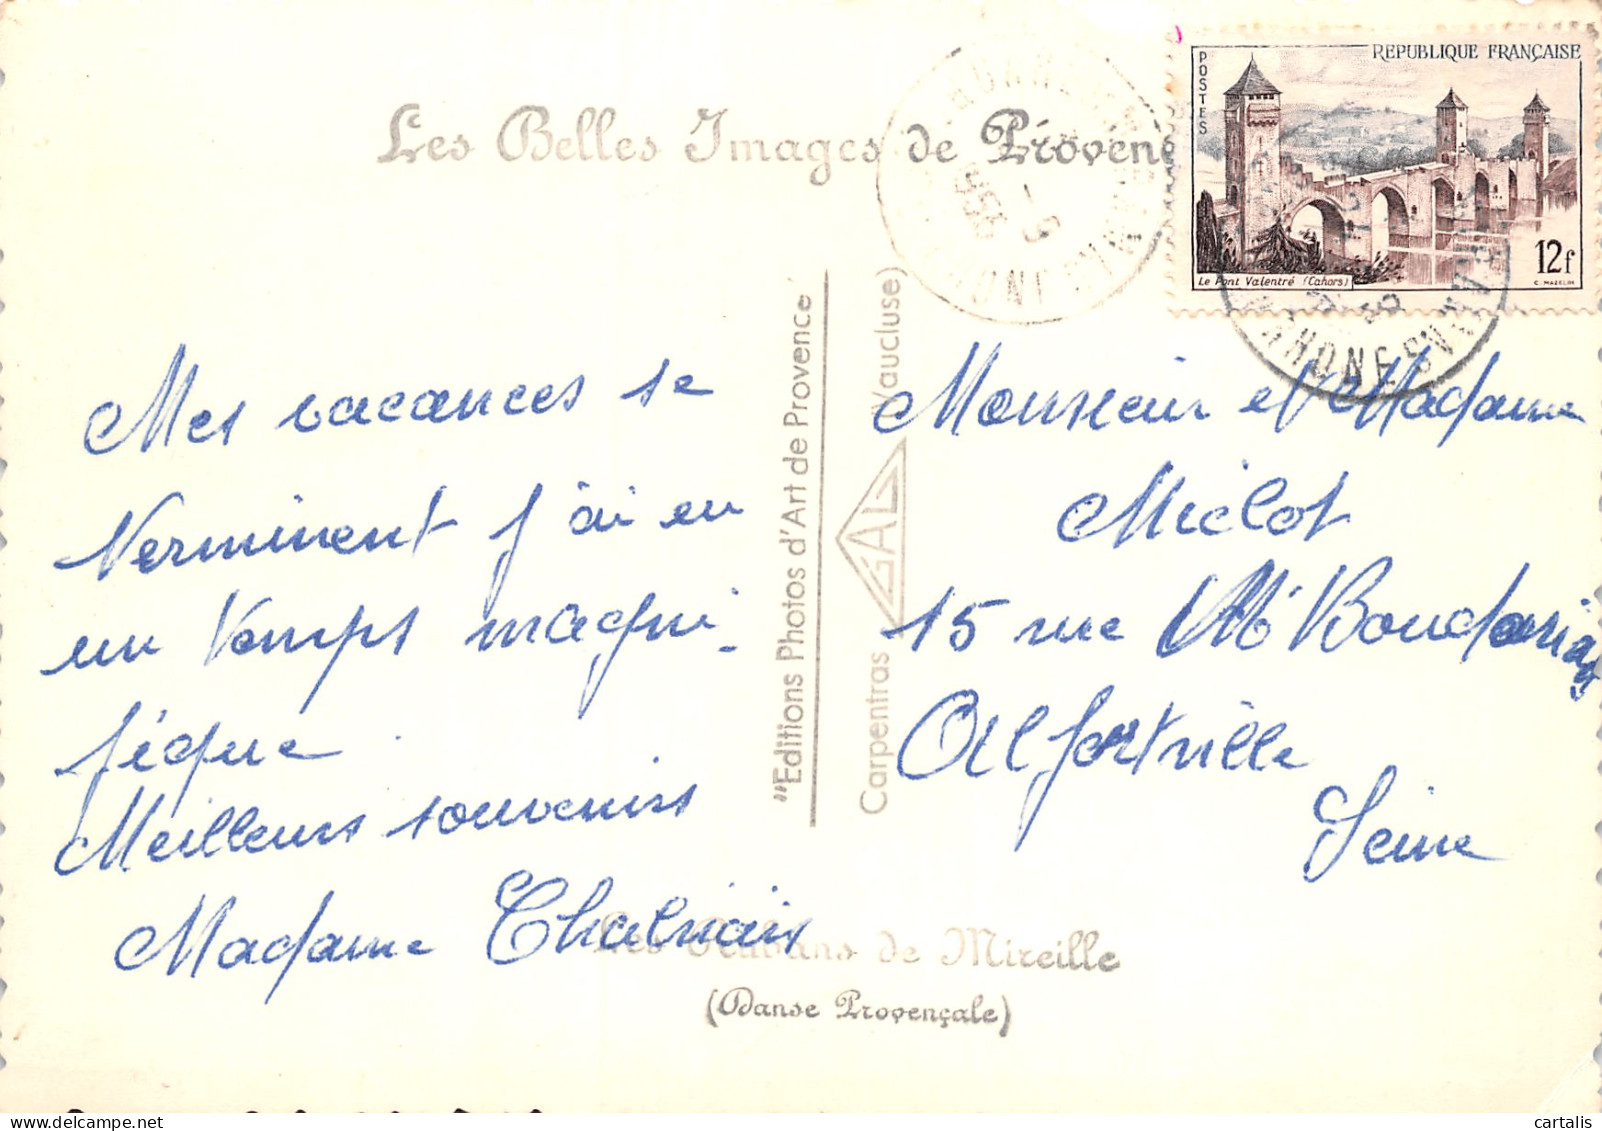 Les Belles Images de Provenc
REPUBLIQUE FRANÇAISE
POSTES
12f
Le Pont Valentré (Cahors)
C. MAZELIN
Mes vacances se
terminent j'ai eu
un temps magni-
fique
Meilleurs souvenirs
Madame
"Editions Photos d'Art de Provence"
Carpentras GAL (Vaucluse)
Monsieur et Madame
Miclot
15 rue Mce Boudarias
Alfortville
Seine
Les Rubans de Mireille
(Danse Provençale)
cartalis